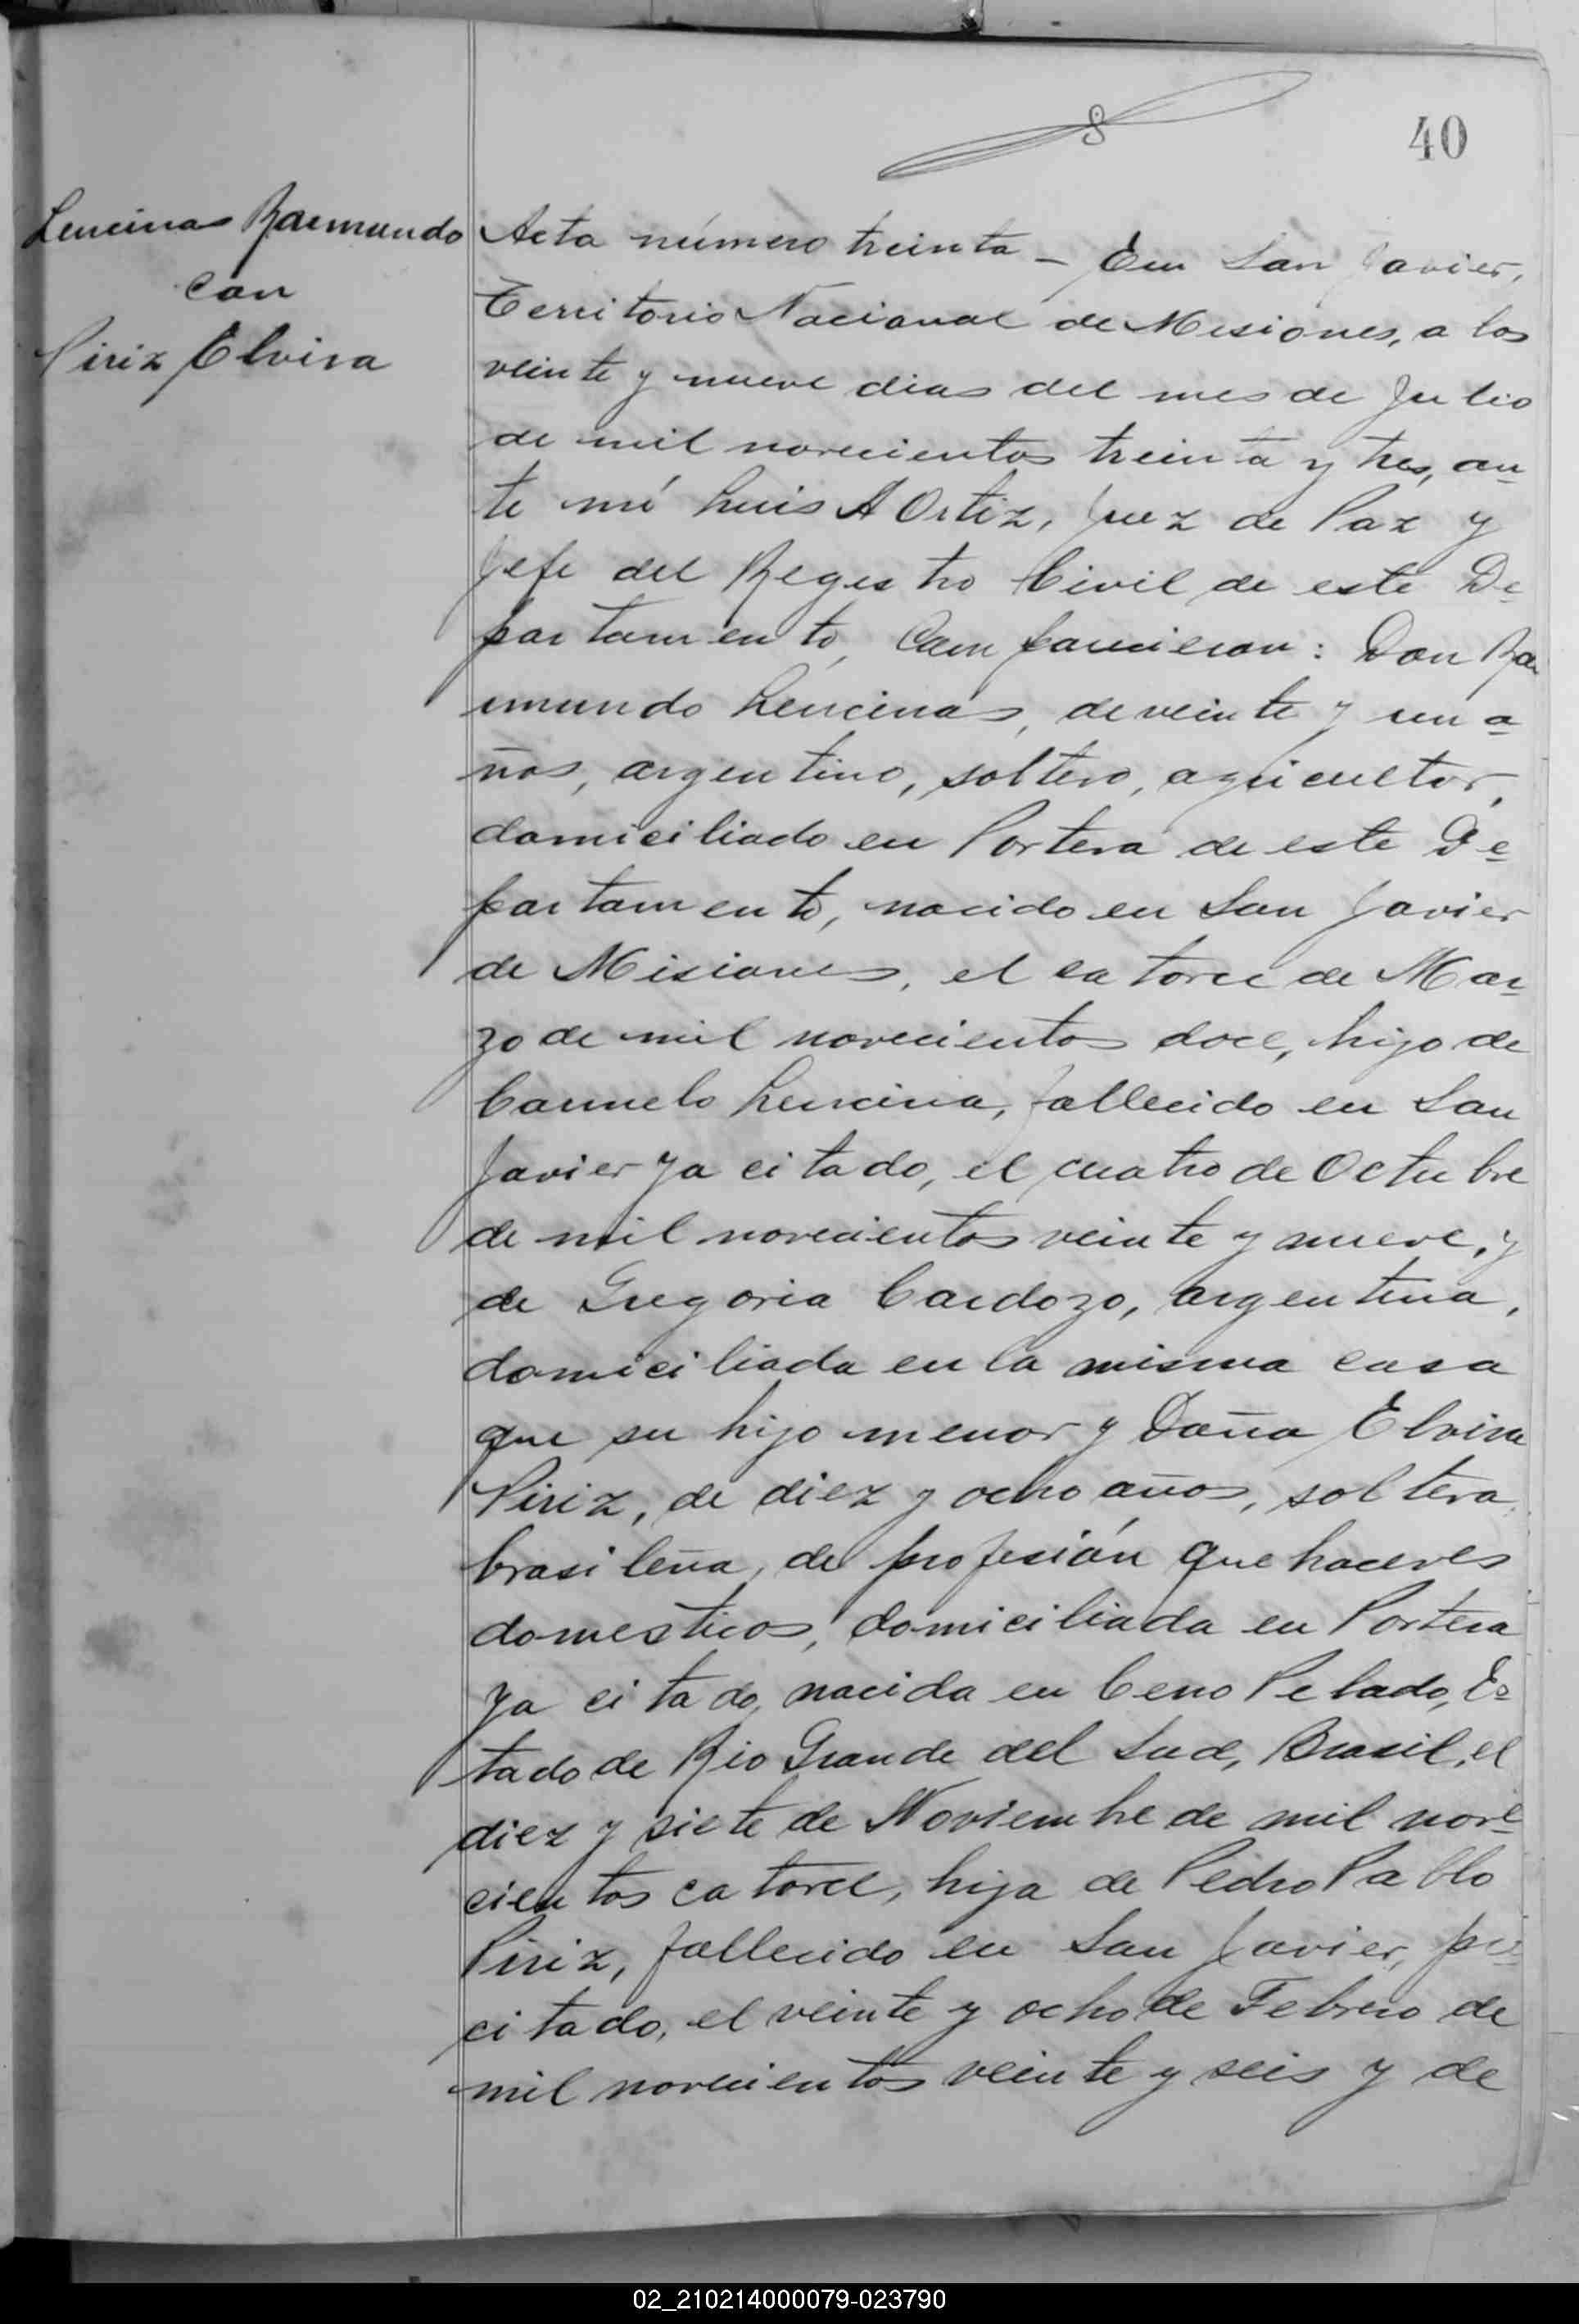 40
Lencinas Raimundo
con
Piriz Elvira
Acta número treinta - En San Javier,
Territorio Nacional de Misiones, a los
veinte y nueve dias del mes de Julio
de mil novecientos treinta y tres, an
te mí Luis A Ortiz, Juez de Paz y
Jefe del Registro Civil de este De
partamento, Comparecieron: Don Rai
mundo Lencinas, de veinte y un a
ños, argentino, soltero, agricultor,
domiciliado en Portera de este De
partamento, nacido en San Javier
de Misiones, el catorce de Mar
zo de mil novecientos doce, hijo de
Carmelo Lencina, fallecido en San
Javier ya citado, el cuatro de Octubre
de mil novecientos veinte y nueve, y
de Gregoria Cardozo, argentina,
domiciliada en la misma casa
que su hijo menor y Doña Elvira
Piriz, de diez y ocho años, soltera,
brasileña, de profesión que haceres
domesticos, domiciliada en Portera
ya citado, nacida en Cerro Pelado, Es
tado de Rio Grande del Sud, Brasil, el
diez y siete de Noviembre de mil nove
cientos catorce, hija de Pedro Pablo
Piriz, fallecido en San Javier, pre
citado, el veinte y ocho de Febrero de
mil novecientos veinte y seis y de
02_210214000079-023790